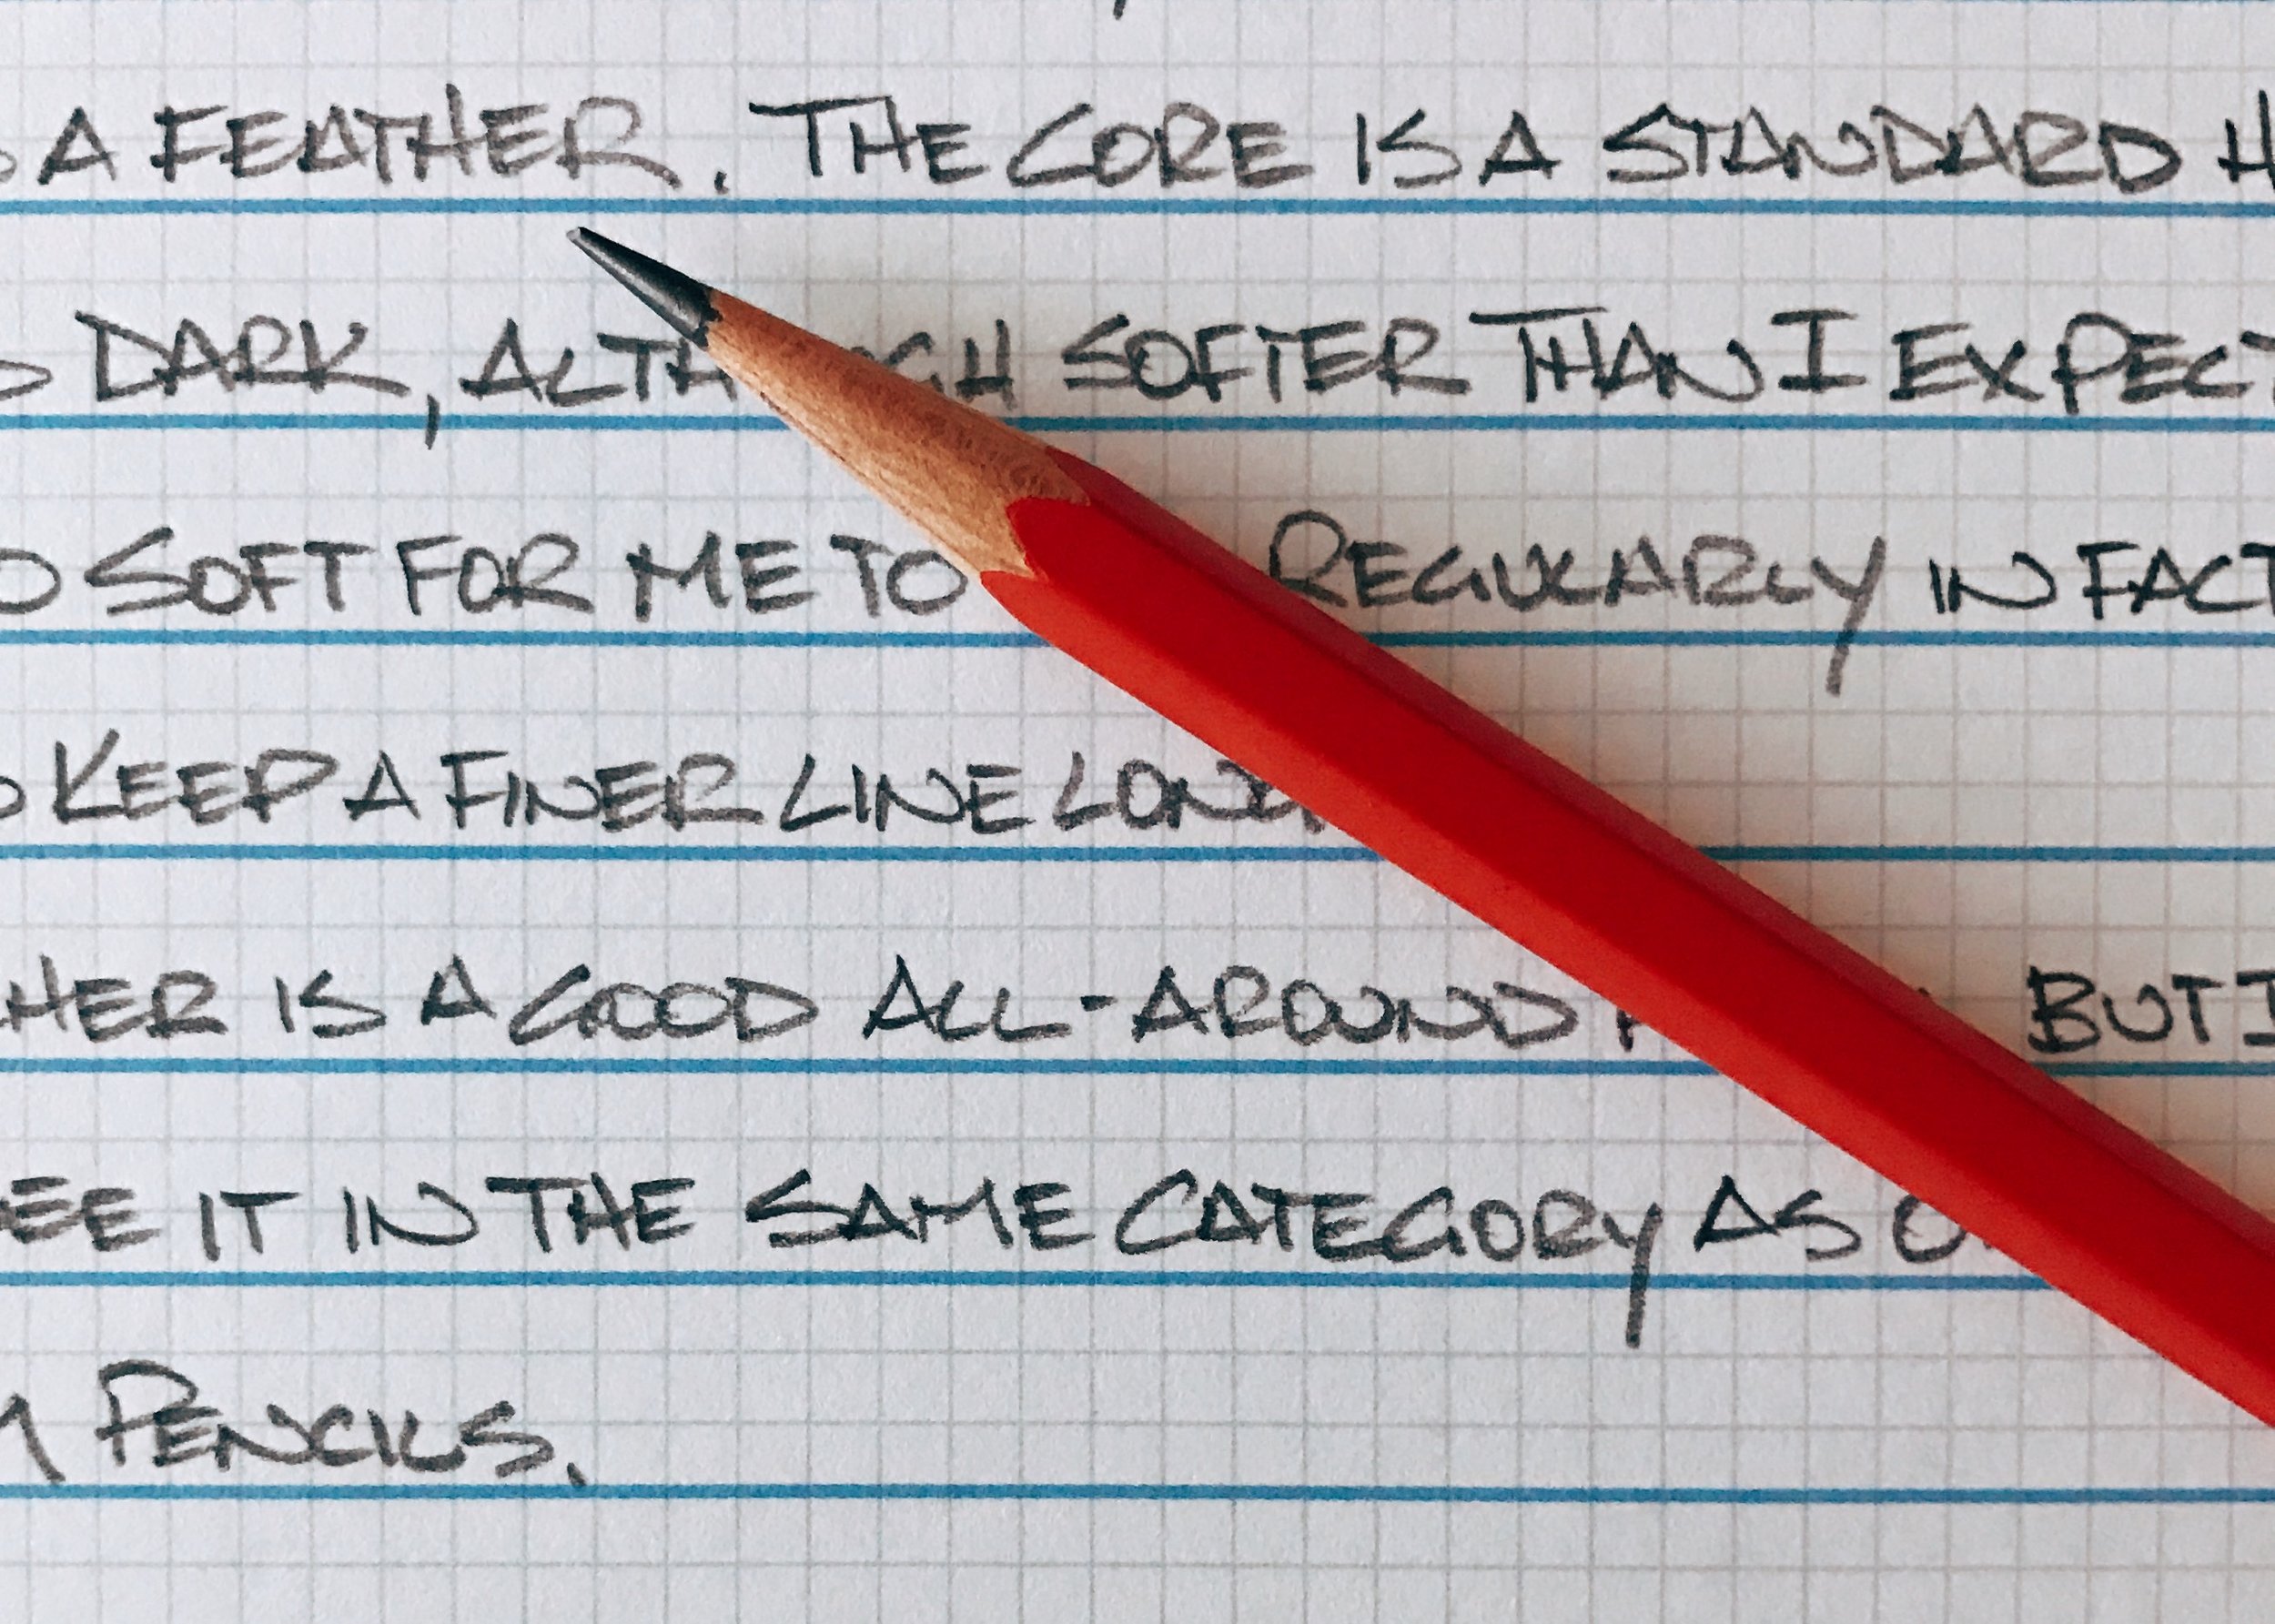 A FEATHER. THE CORE IS A STANDARD H
DARK, ALTHOUGH SOFTER THAN I EXPECT
SOFT FOR ME TO REGULARLY IN FACT
KEEP A FINER LINE LONG
HER IS A GOOD ALL-AROUND BUT I
EE IT IN THE SAME CATEGORY AS
PENCILS.